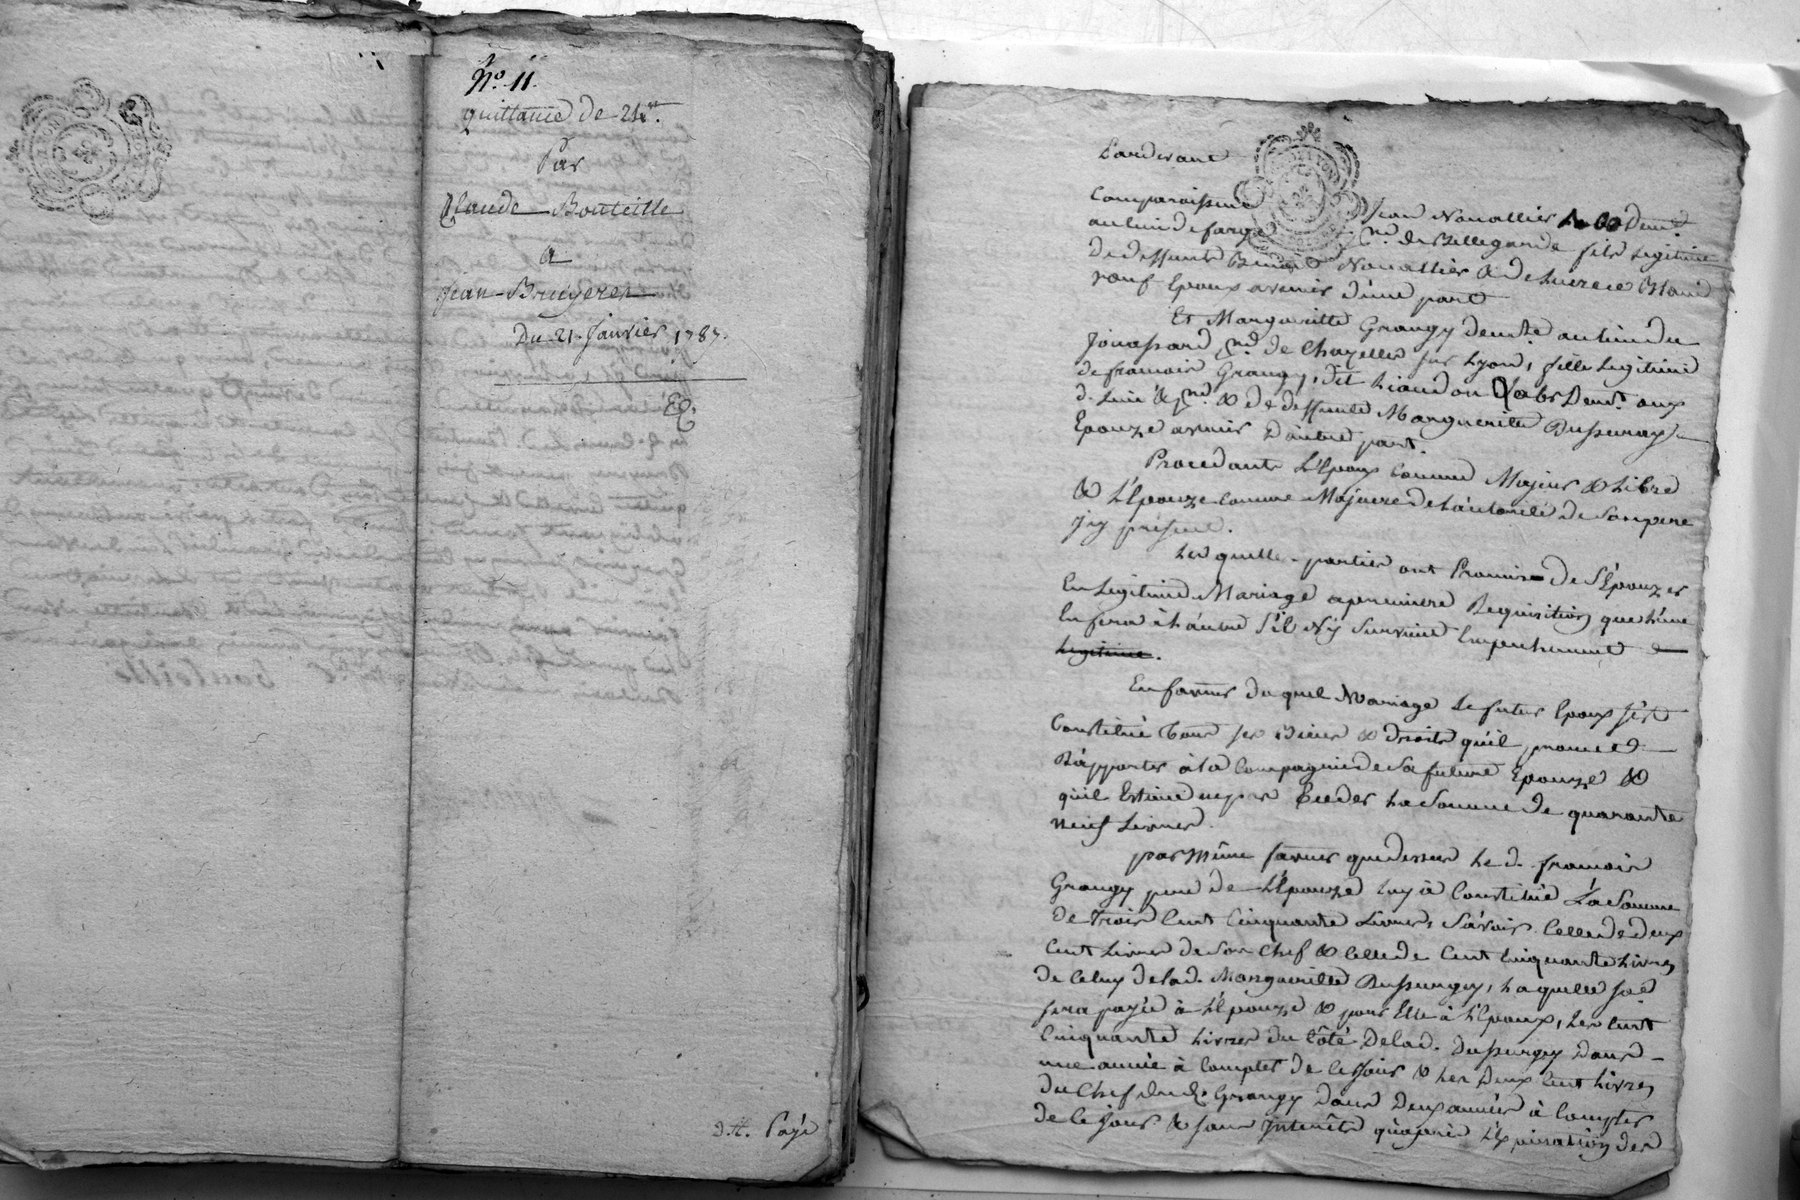 No. 11.
quittance de 21#.
Par
Claude Bouteille
a
Jean Bruyere
Du 21. Janvier 1787.
d.tt. Payé
Pardevant
Comparaissent Jean Nouallier Demt.
au lieu de farge de Bellegarde fils Legitime
De deffunts Benoit Nouallier & de Lucrece
veuf Epoux avenir d'une part
Et Marguerite Grangy demte. au lieu du
Jouassard de Chazelles sur Lyon, fille Legitime
de francois Grangy, dit Labr Demt. aux
d. Lieu & & de deffunte Marguerite Dussurgy
Epouze avenir D'autre part.
Procedants L'Epoux comme Majeur & Libre
& L'Epouze comme Majeure de L'autorité de Son pere
jcy présent.
Les quelles parties ont Promis de S'Epouzer
En Legitime Mariage a premiere Requisition que L'une
En fera à L'autre s'il N'y Survient Empechement
Legitime.
En faveur du quel Mariage Le futur Epoux s'est
Constitué Tous ses Biens & droits qu'il promet
D'apporter à la Compagnie de Sa future Epouze &
qu'il Estime Exceder La Somme de quarante
neuf Livres.
par Même faveur que dessus Le d. francois
Grangy pere de L'Epouze Luy à Constitué La Somme
de Trois Cent Cinquante Livres, Sçavoir Celle de deux
Cent Livres de Son Chef & Celle de Cent Cinquante Livres
de Celuy de lad. Marguerite Dussurgey, La quelle
sera payée à L'Epouze & pour Elle à L'Epoux, Les Cent
Cinquante Livres du Côté de lad. Dussurgey Dans
une année à Compter de Ce Jour & Les Deux Cent Livres
du Chef dud. Grangy Dans Deux années à Compter
de Ce Jour & sans Interêts qu'après L'Expiration des